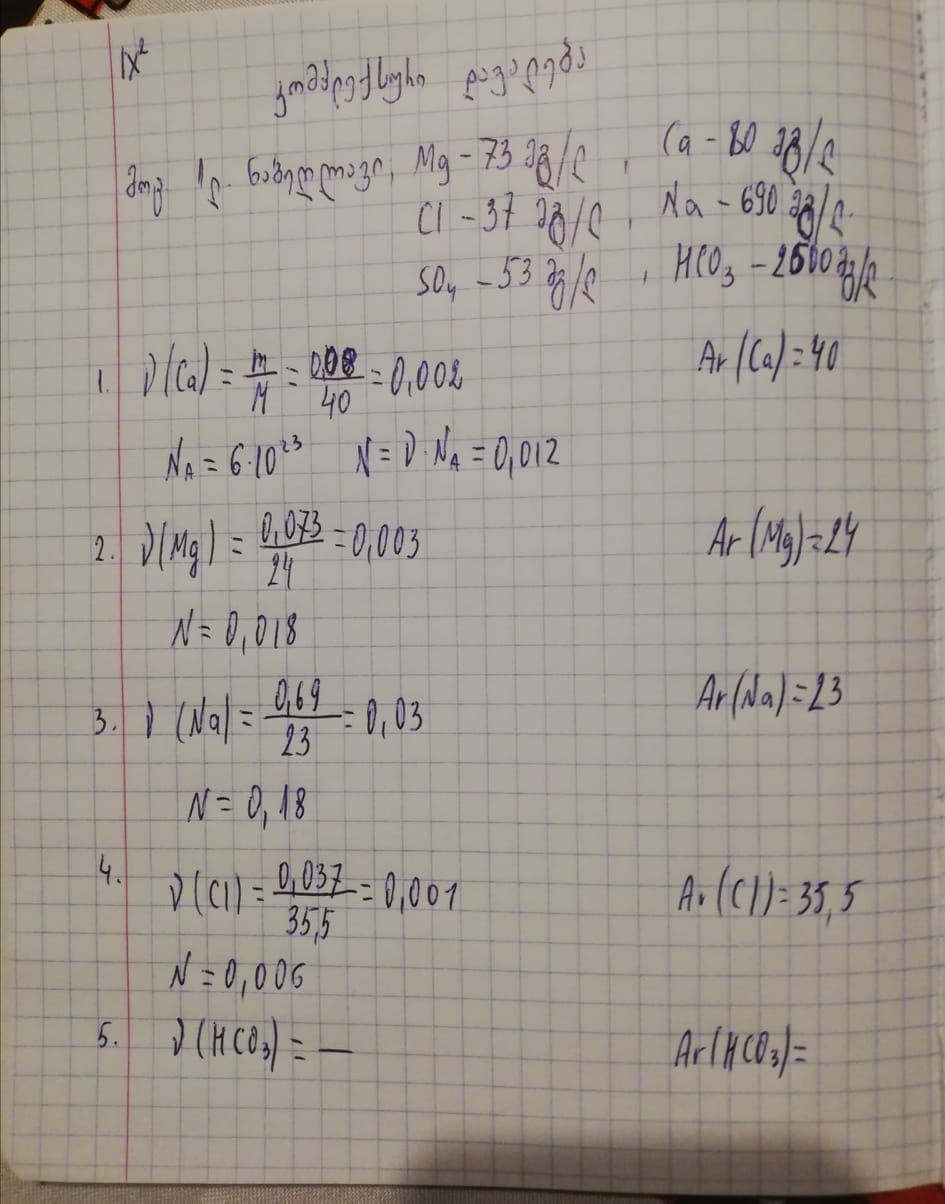 IX²
კომპლექსური დავალება
მოც. 1ლ. ნაბეღლავი, Mg – 73 მგ/ლ, Ca – 80 მგ/ლ
Cl – 37 მგ/ლ, Na – 690 მგ/ლ.
SO₄ – 53 მგ/ლ, HCO₃ – 2600 მგ/ლ
1. ν(Ca) = m/M = 0,08/40 = 0,002 Ar(Ca) = 40
N_A = 6·10²³ N = ν·N_A = 0,012
2. ν(Mg) = 0,073/24 = 0,003 Ar(Mg) = 24
N = 0,018
3. ν(Na) = 0,69/23 = 0,03 Ar(Na) = 23
N = 0,18
4. ν(Cl) = 0,037/35,5 = 0,001 Ar(Cl) = 35,5
N = 0,006
5. ν(HCO₃) = — Ar(HCO₃) =